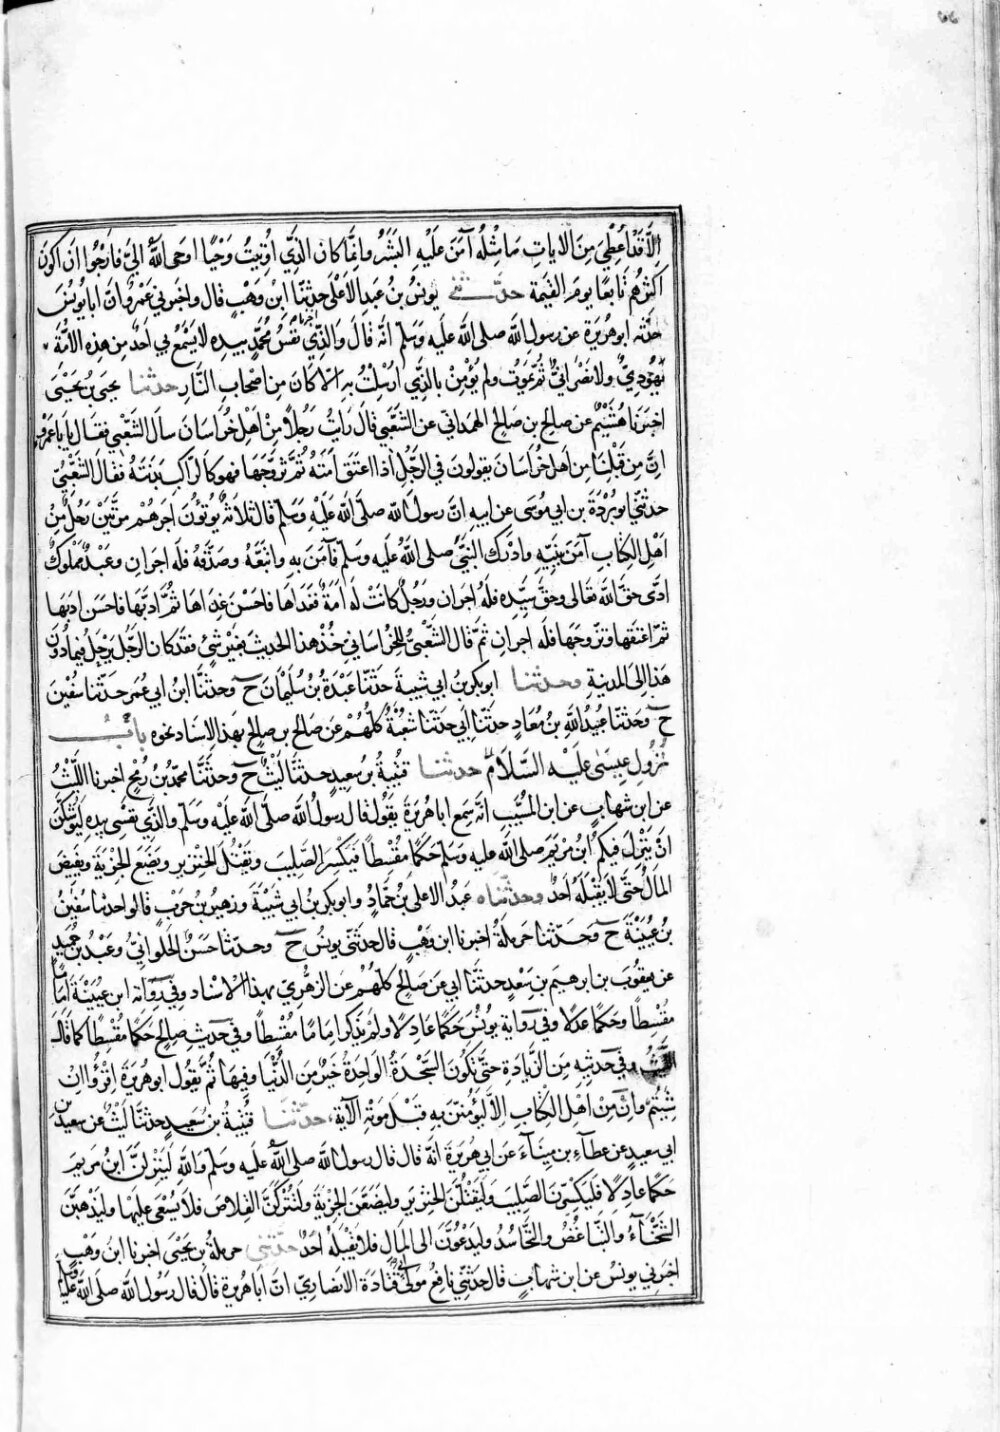 الا قد اعطي من الايات ما مثله آمن عليه البشر وانما كان الذي اوتيت وحيا اوحى الله الي فارجوا ان اكون
اكثرهم تابعا يوم القيمة حدثني يونس بن عبد الاعلى حدثنا ابن وهب قال واخبرني عمرو ان ابا يونس
حدثه ابو هريرة عن رسول الله صلى الله عليه وسلم انه قال والذي نفس محمد بيده لا يسمع بي احد من هذه الامة
يهودي ولا نصراني ثم يموت ولم يؤمن بالذي ارسلت به الا كان من اصحاب النار حدثنا يحيى بن يحيى
اخبرنا هشيم عن صالح بن صالح الهمداني عن الشعبي قال رايت رجلا من اهل خراسان سأل الشعبي فقال يا با عمرو
ان من قبلنا من اهل خراسان يقولون في الرجل اذا اعتق امته ثم تزوجها فهو كالراكب بدنته فقال الشعبي
حدثني ابو بردة بن ابي موسى عن ابيه ان رسول الله صلى الله عليه وسلم قال ثلاثة يوتؤن اجرهم مرتين رجل من
اهل الكتاب آمن بنبيه وادرك النبي صلى الله عليه وسلم فآمن به واتبعه وصدقه فله اجران وعبد مملوك
ادى حق الله تعالى وحق سيده فله اجران ورجل كانت له امة فغداها فاحسن غداها ثم ادبها فاحسن ادبها
ثم اعتقها وتزوجها فله اجران ثم قال الشعبي للخراساني خذ هذا الحديث بغير شئ فقد كان الرجل يرحل فيما دون
هذا الى المدينة وحدثنا ابو بكر بن ابي شيبة حدثنا عبدة بن سليمان ح وحدثنا ابن ابي عمر حدثنا سفين
ح وحدثنا عبيد الله بن معاد حدثنا ابي حدثنا شعبة كلهم عن صالح بن صالح بهذا الاسناد نحوه باب
نزول عيسى عليه السلام حدثنا قتيبة بن سعيد حدثنا ليث ح وحدثنا محمد بن رمح اخبرنا الليث
عن ابن شهاب عن ابن المسيب انه سمع ابا هريرة يقول قال رسول الله صلى الله عليه وسلم والذي نفسي بيده ليوشكن
ان ينزل فيكم ابن مريم صلى الله عليه وسلم حكما مقسطا فيكسر الصليب ويقتل الخنزير ويضع الجزية ويفيض
المال حتى لا يقبله احد وحدثناه عبد الاعلى بن حماد وابو بكر بن ابي شيبة وزهير بن حرب قالوا حدثنا سفين
بن عيينة ح وحدثنا حرملة اخبرنا ابن وهب قال حدثني يونس ح وحدثنا حسن الحلواني وعبد بن حميد
عن يعقوب بن ابرهيم بن سعد حدثنا ابي عن صالح كلهم عن الزهري بهذا الاسناد وفي رواية ابن عيينة اماما
مقسطا وحكما عدلا وفي رواية يونس حكما عادلا ولم يذكر اماما مقسطا وفي حديث صالح حكما مقسطا كما قال
الليث وفي حديثه من الزيادة حتى تكون السجدة الواحدة خير من الدنيا وفيها ثم يقول ابو هريرة اقرؤا ان
شيتم وان من اهل الكتاب الا ليؤمنن به قبل موته الآية حدثنا قتيبة بن سعيد حدثنا ليث عن سعيد بن
ابي سعيد عن عطاء بن ميناء عن ابي هريرة انه قال قال رسول الله صلى الله عليه وسلم والله لينزلن ابن مريم
حكما عادلا فليكسرن الصليب وليقتلن الخنزير وليضعن الجزية ولتتركن القلاص فلا يسعى عليها وليذهبن
الشحناء والتباغض والتحاسد وليدعون الى المال فلا يقبله احد حدثني حرملة بن يحيى اخبرنا ابن وهب
اخبرني يونس عن ابن شهاب قال حدثني نافع مولى ابي قتادة الانصاري ان ابا هريرة قال قال رسول الله صلى الله عليه وسلم